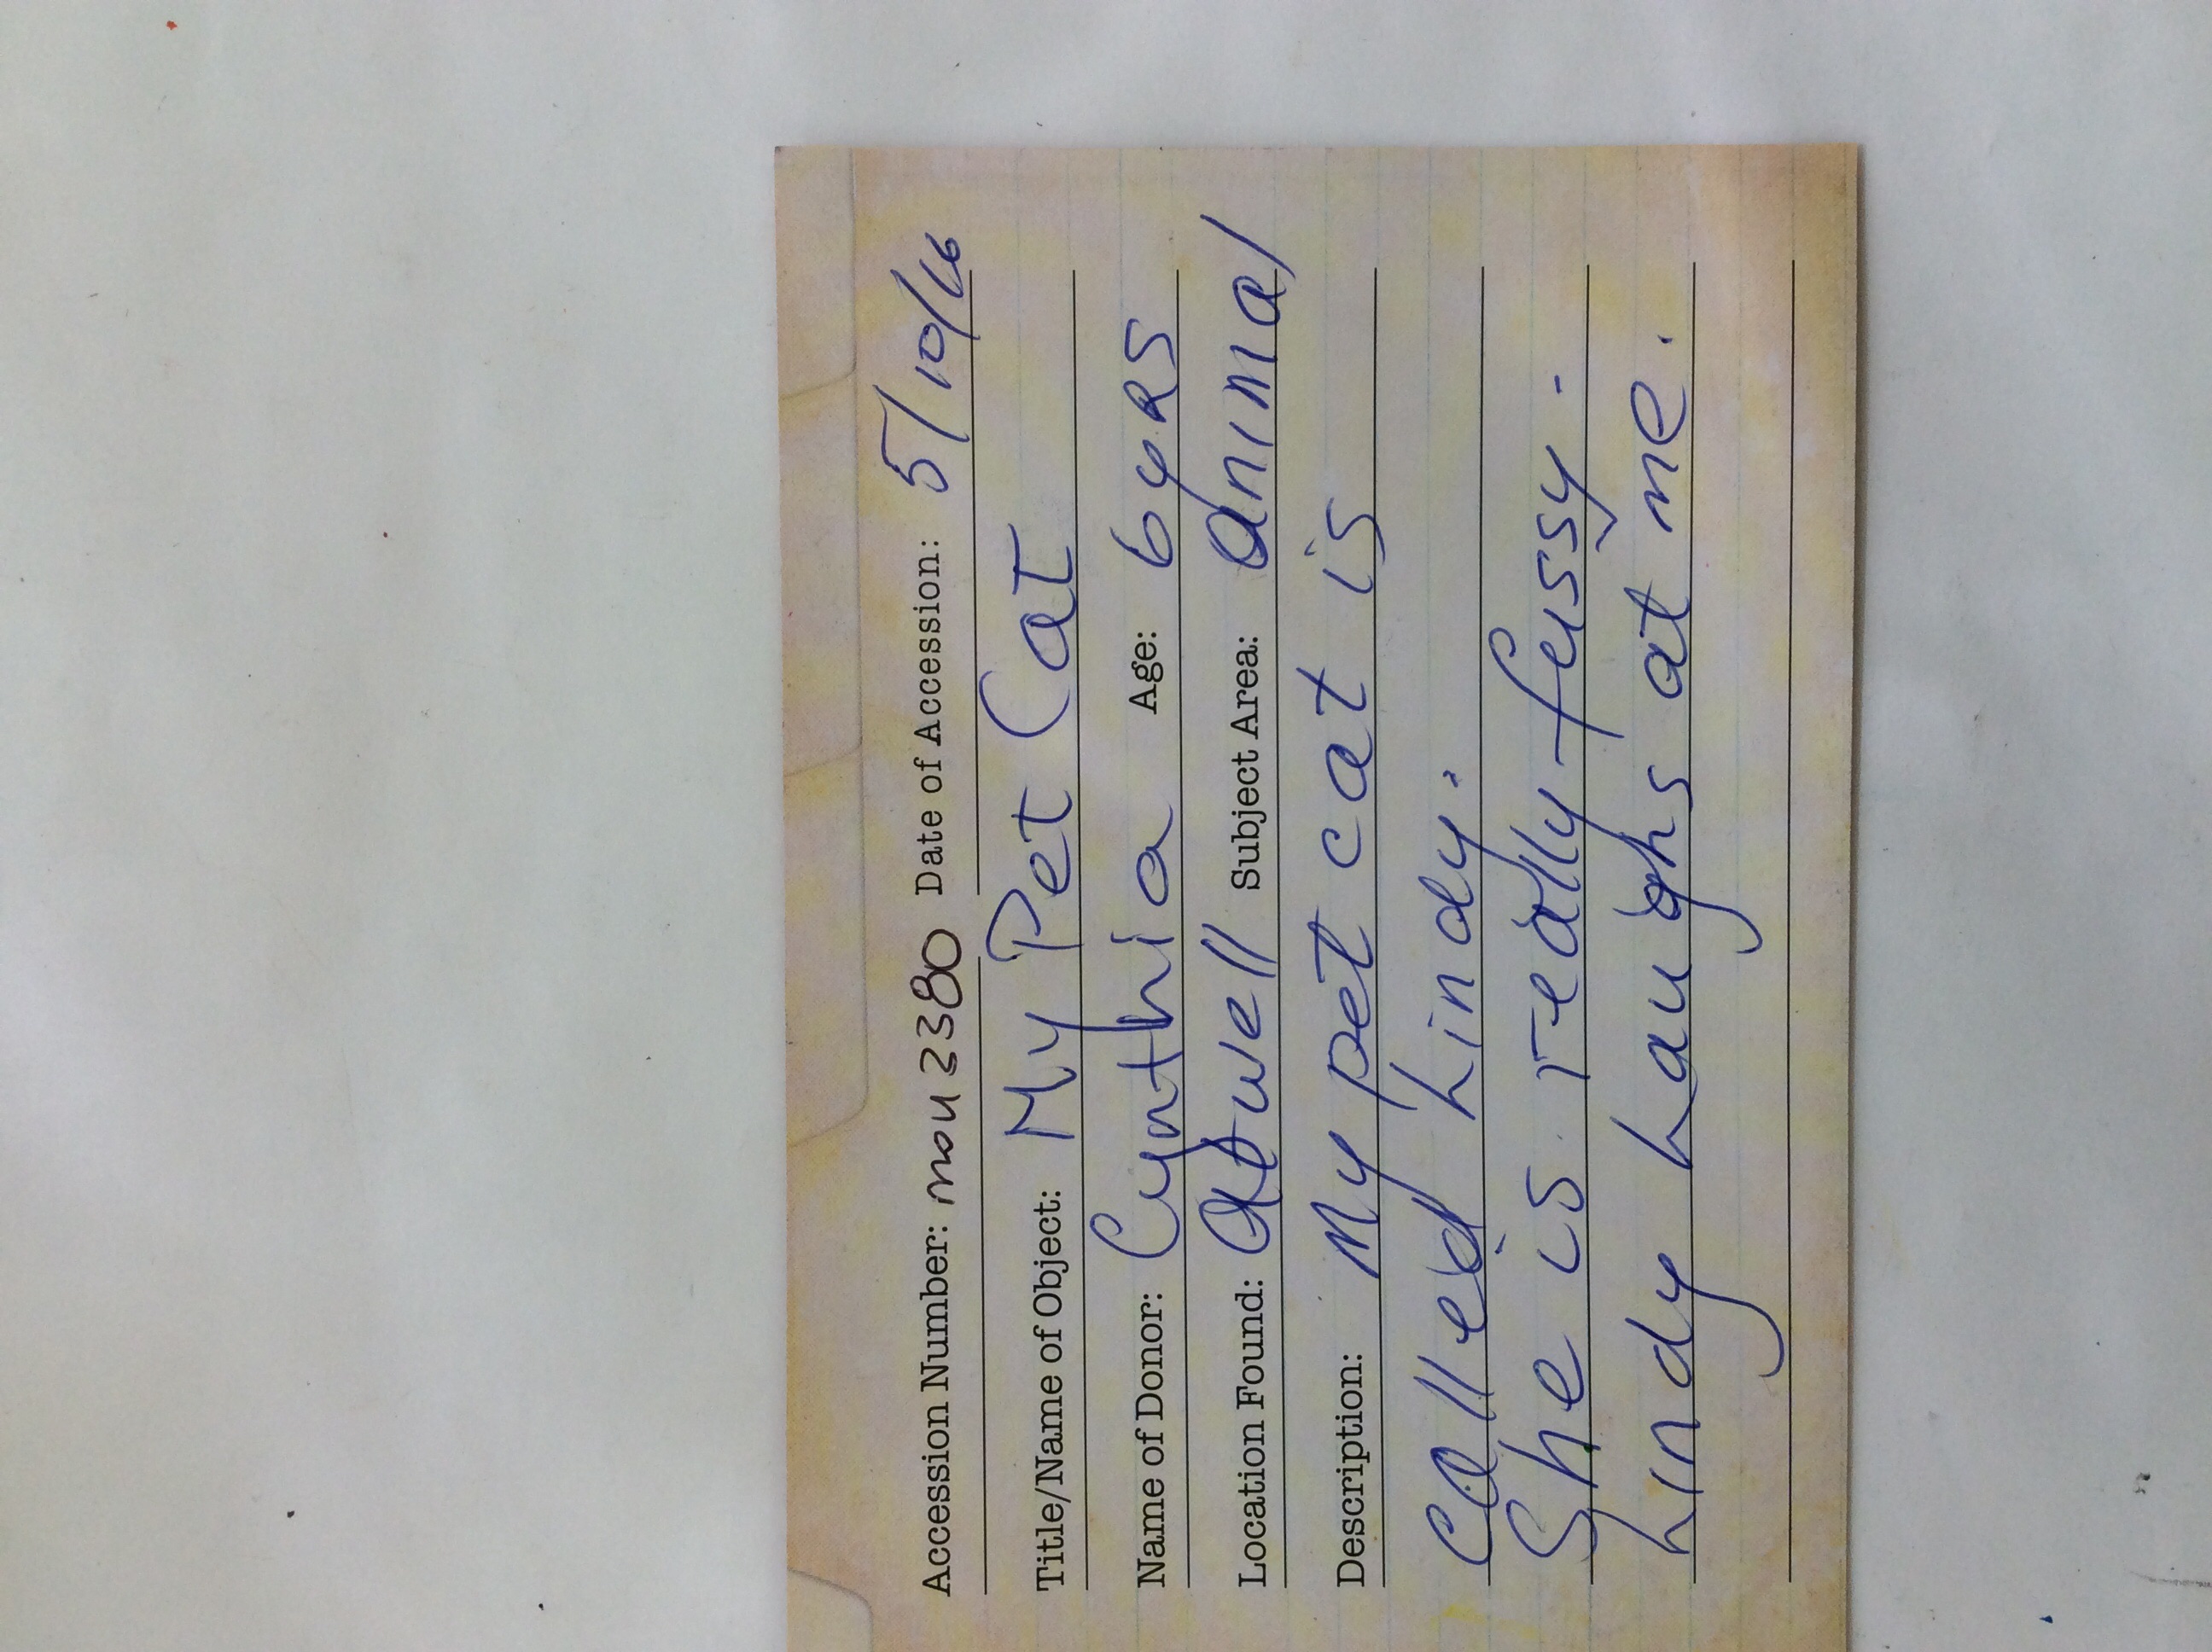 Accession Number: mou 2380 Date of Accession: 5/10/16
Title/Name of Object: My Pet Cat
Name of Donor: Cynthia Age: 6 yrs
Location Found: Atwell Subject Area: animal
Description: My pet cat is
called Lindy.
She is really fussy.
Lindy Laughs at me.